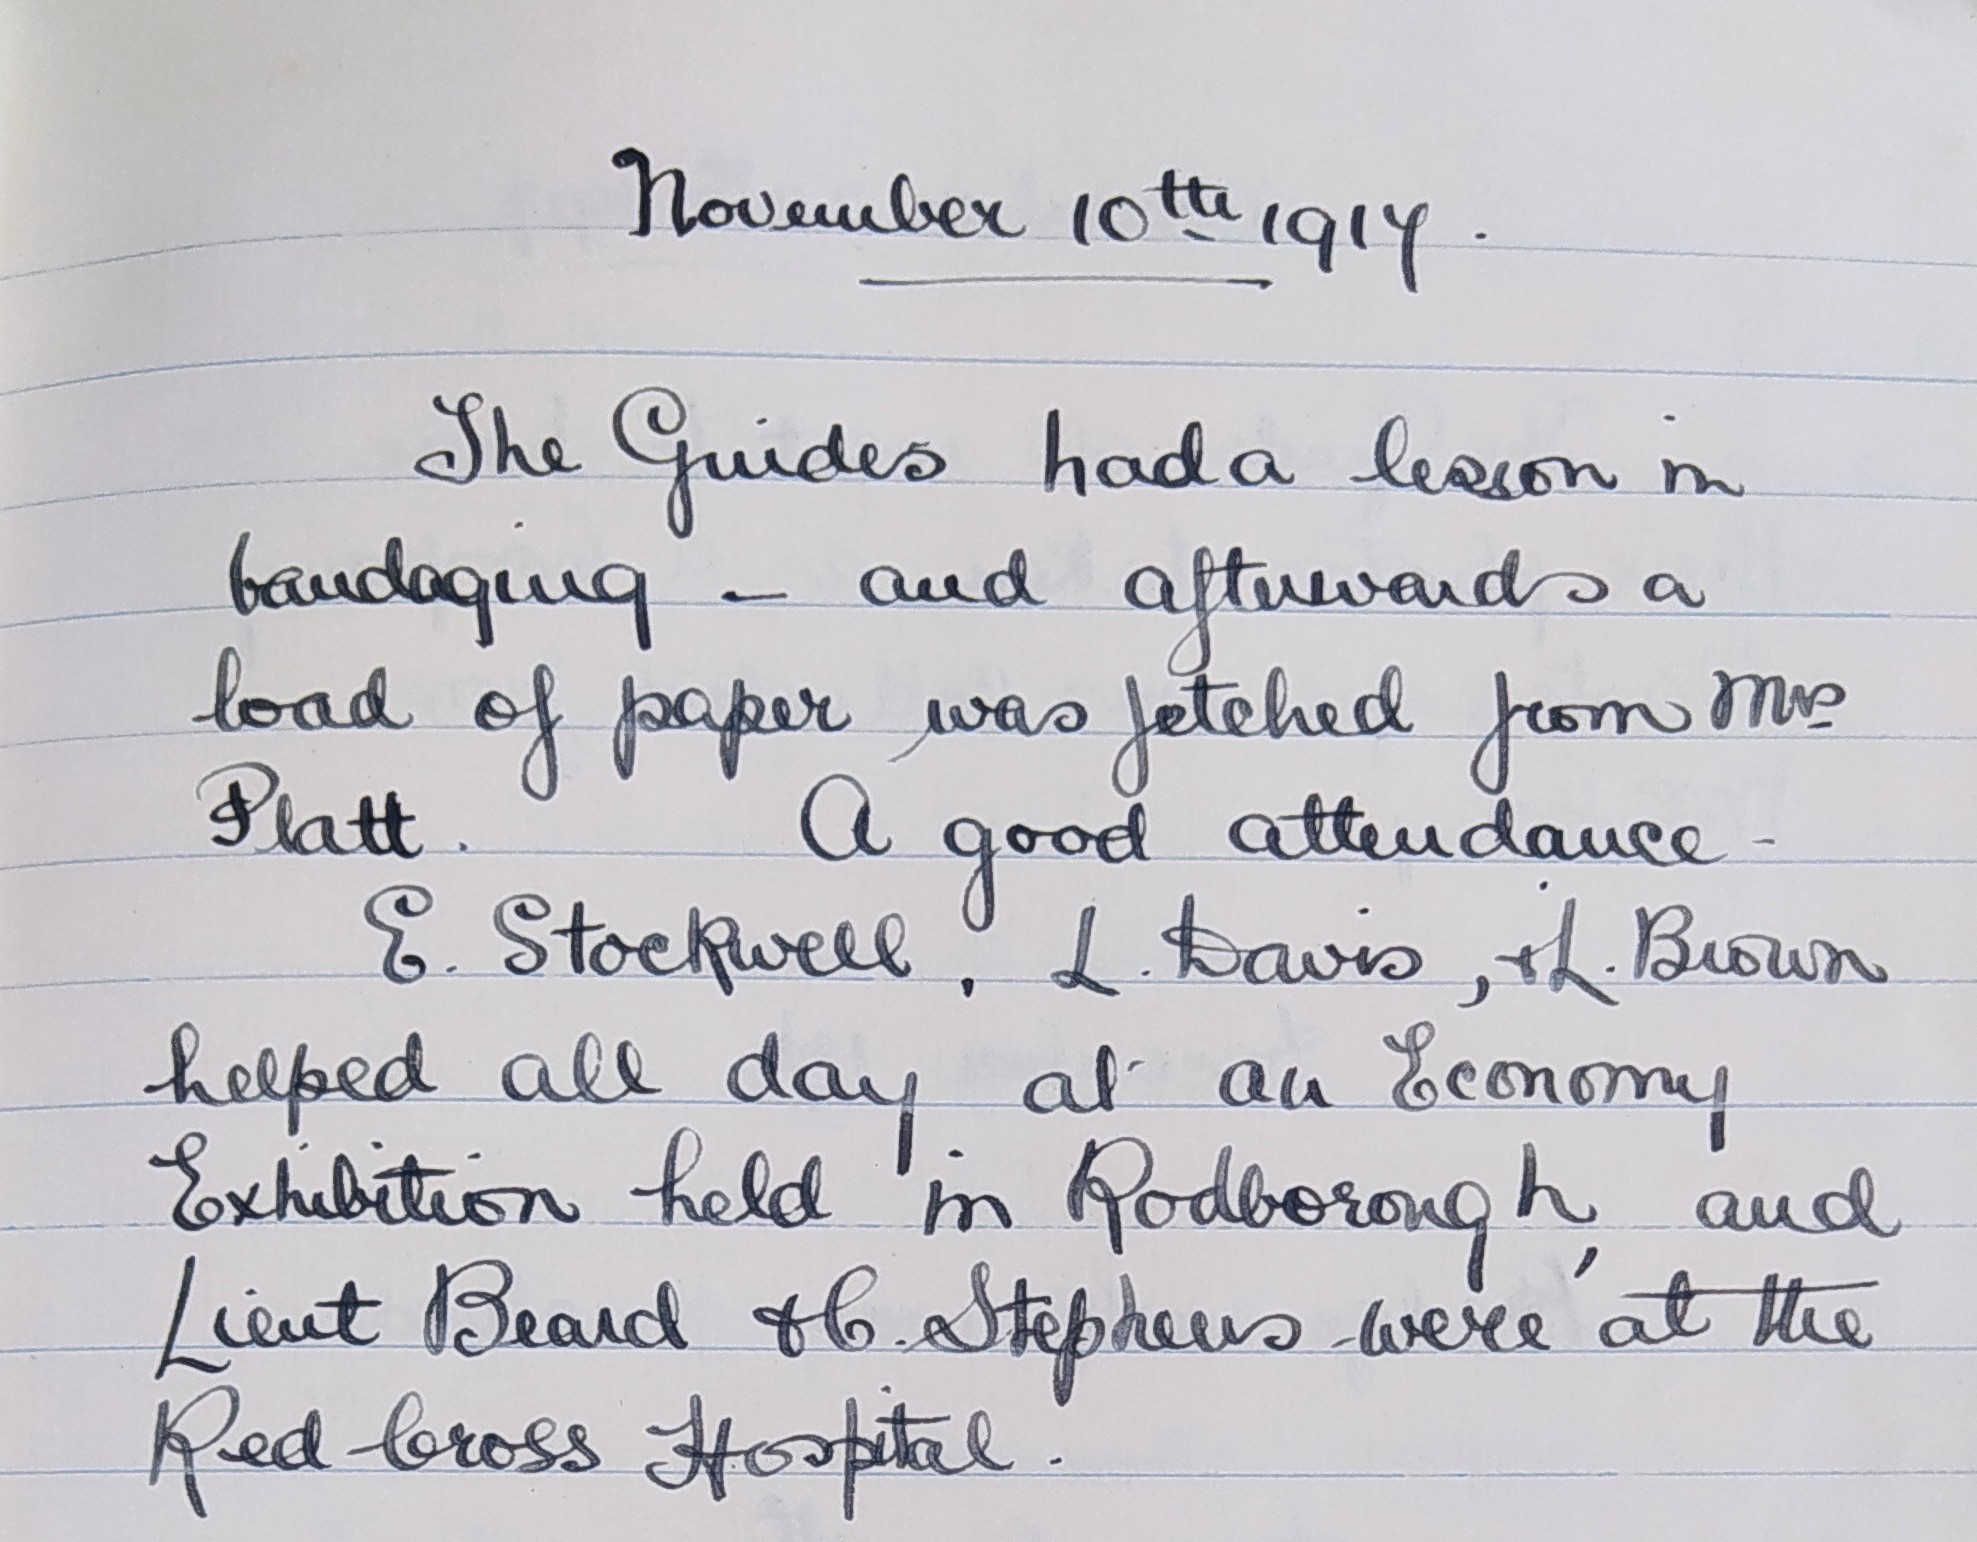 November 10th 1917.
The Guides had a lesson in
bandaging – and afterwards a
load of paper was fetched from Mrs
Platt. A good attendance -
E. Stockwell, L. Davis, & L. Brown
helped all day at an Economy
Exhibition held in Rodborough, and
Lieut Beard & C. Stephens were at the
Red Cross Hospital.